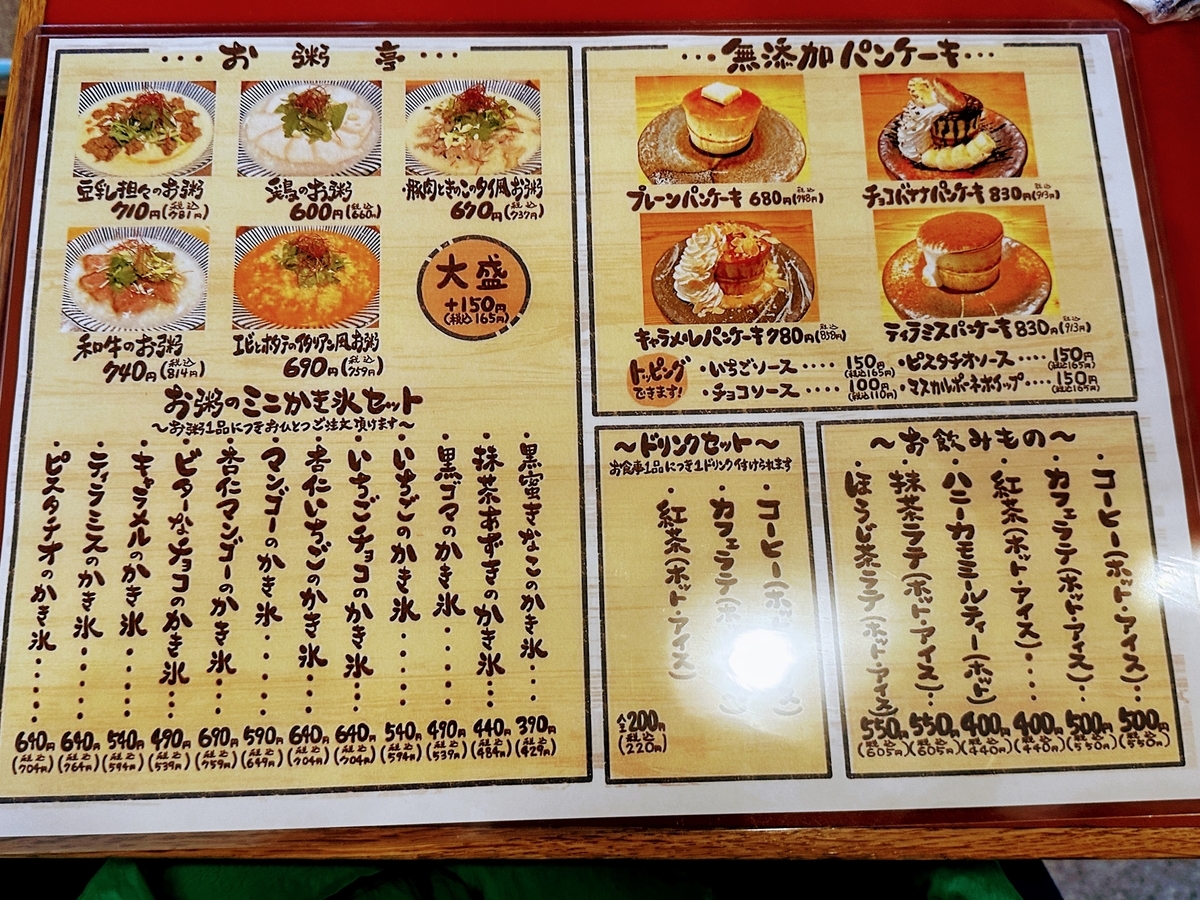 ・・・お粥亭・・・
豆乳担々のお粥
710円(税込781円)
鶏のお粥
600円(660円)
・豚肉ときのこのタイ風お粥
670円(税込737円)
和牛のお粥
740円(税込814円)
エビとホタテのイタリアン風お粥
690円(税込759円)
大盛
+150円
(税込165円)
お粥のミニかき氷セット
～お粥1品につきおひとつご注文頂けます～
・黒蜜きなこのかき氷・・・390円(税込429円)
・抹茶あずきのかき氷・・440円(税込484円)
・黒ゴマのかき氷・・・・490円(税込539円)
・いちごのかき氷・・・・540円(税込594円)
・いちごチョコのかき氷・・640円(税込704円)
・杏仁いちごのかき氷・・640円(税込704円)
・マンゴーのかき氷・・・・590円(税込649円)
・杏仁マンゴーのかき氷・・690円(税込759円)
・ビターなチョコのかき氷・・490円(税込539円)
・キャラメルのかき氷・・・・540円(税込594円)
・ティラミスのかき氷・・・・640円(税込704円)
・ピスタチオのかき氷・・・・640円(税込704円)
・・・無添加パンケーキ・・・
プレーンパンケーキ 680円(税込748円)
チョコバナナパンケーキ 830円(税込913円)
キャラメルパンケーキ 780円(税込858円)
ティラミスパンケーキ 830円(税込913円)
トッピング
できます!
・いちごソース・・・・150円(税込165円)
・チョコソース・・・・100円(税込110円)
・ピスタチオソース・・・・150円(税込165円)
・マスカルポーネホイップ・・・・150円(税込165円)
～ドリンクセット～
お食事1品につき1ドリンク付けられます
・コーヒー(ホッ
・カフェラテ(ホッ
・紅茶(ホット・アイス)
全200円
(税込220円)
～お飲みもの～
・コーヒー(ホット・アイス)・・・500円(税込550円)
・カフェラテ(ホット・アイス)・・500円(税込550円)
・紅茶(ホット・アイス)・・・400円(税込440円)
・ハニーカモミールティー(ホット)400円(税込440円)
・抹茶ラテ(ホット・アイス)・・550円(税込605円)
・ほうじ茶ラテ(ホット・アイス)550円(税込605円)